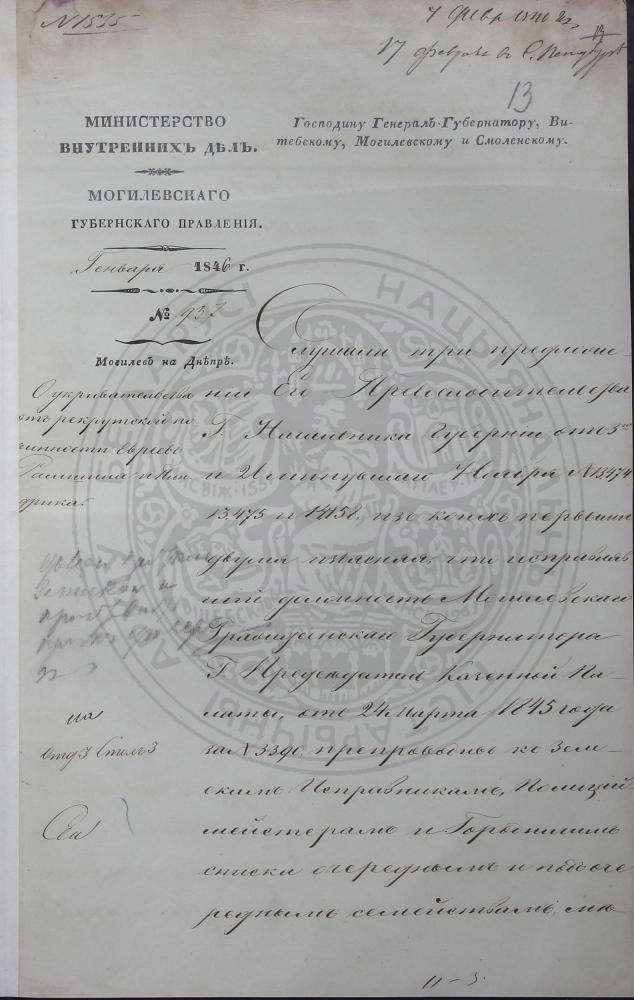 N 1535
17 февраля
13
МИНИСТЕРСТВО
ВНУТРЕННИХЪ ДѢЛЪ.
МОГИЛЕВСКАГО
ГУБЕРНСКАГО ПРАВЛЕНІЯ.
Генваря 1846 г.
№ 937
Могилевъ на Днѣпрѣ.
Господину Генералъ-Губернатору, Ви-
тебскому, Могилевскому и Смоленскому.
О укрывательствѣ
отъ рекрутской по
винности Евреевъ
Слушали три предложе-
нія Его Превосходительства
Г. Начальника Губерніи отъ 3го
и 2 минувшаго Ноября N 13474
13,475 и 14158, изъ коихъ первыми
двумя изъясняя, что исправляв
шій должность Могилевскаго
Гражданскаго Губернатора
Г. Предсѣдатель Казенной Па-
латы, отъ 24 Марта 1845 года
за N 3390, препроводилъ къ Зем-
скимъ Исправникамъ, Полиций
мейстерамъ и Городничимъ
списки очереднымъ и подъоче
реднымъ семействамъ, мѣ
на
Отд 3 Столъ 3